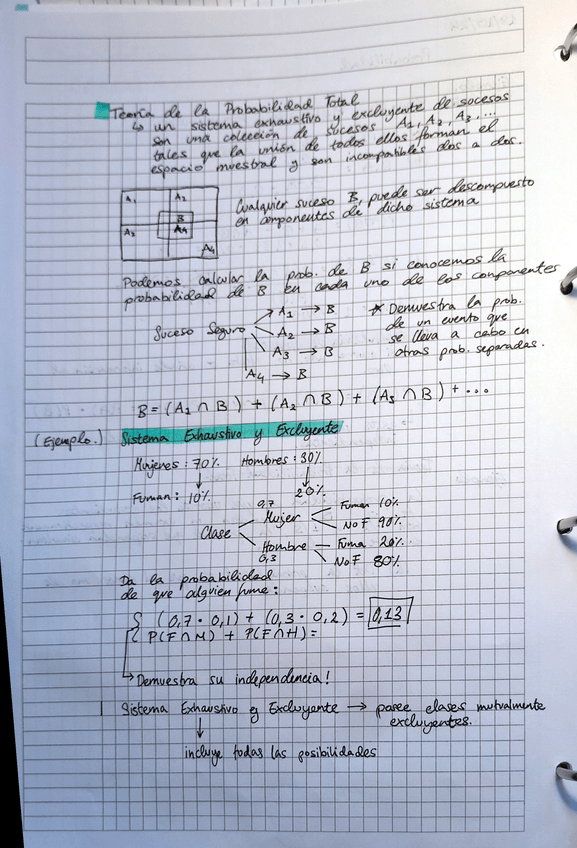 Teoría de la Probabilidad Total
↳ un sistema exhaustivo y excluyente de sucesos
son una colección de sucesos A1, A2, A3, ...
tales que la unión de todos ellos forman el
espacio muestral y son incompatibles dos a dos.
A1 A2
B
A3 A4
A4
Cualquier suceso B, puede ser descompuesto
en componentes de dicho sistema
Podemos calcular la prob. de B si conocemos la
probabilidad de B en cada uno de los componentes
Suceso Seguro
A1 → B
A2 → B
A3 → B
A4 → B
* Demuestra la prob.
de un evento que
se lleva a cabo en
otras prob. separadas.
B = (A1 ∩ B) + (A2 ∩ B) + (A3 ∩ B) + ...
(Ejemplo.) Sistema Exhaustivo y Excluyente
Mujeres: 70% Hombres: 30%
Fuman: 10% 20%
Clase
0,7
Mujer
Fuman 10%
No F 90%
Hombre
0,3
Fuma 20%
No F 80%
Da la probabilidad
de que alguien fume:
(0,7 · 0,1) + (0,3 · 0,2) = 0,13
P(F∩M) + P(F∩H) =
↳ Demuestra su independencia!
Sistema Exhaustivo y Excluyente → posee clases mutualmente
excluyentes.
↓
incluye todas las posibilidades